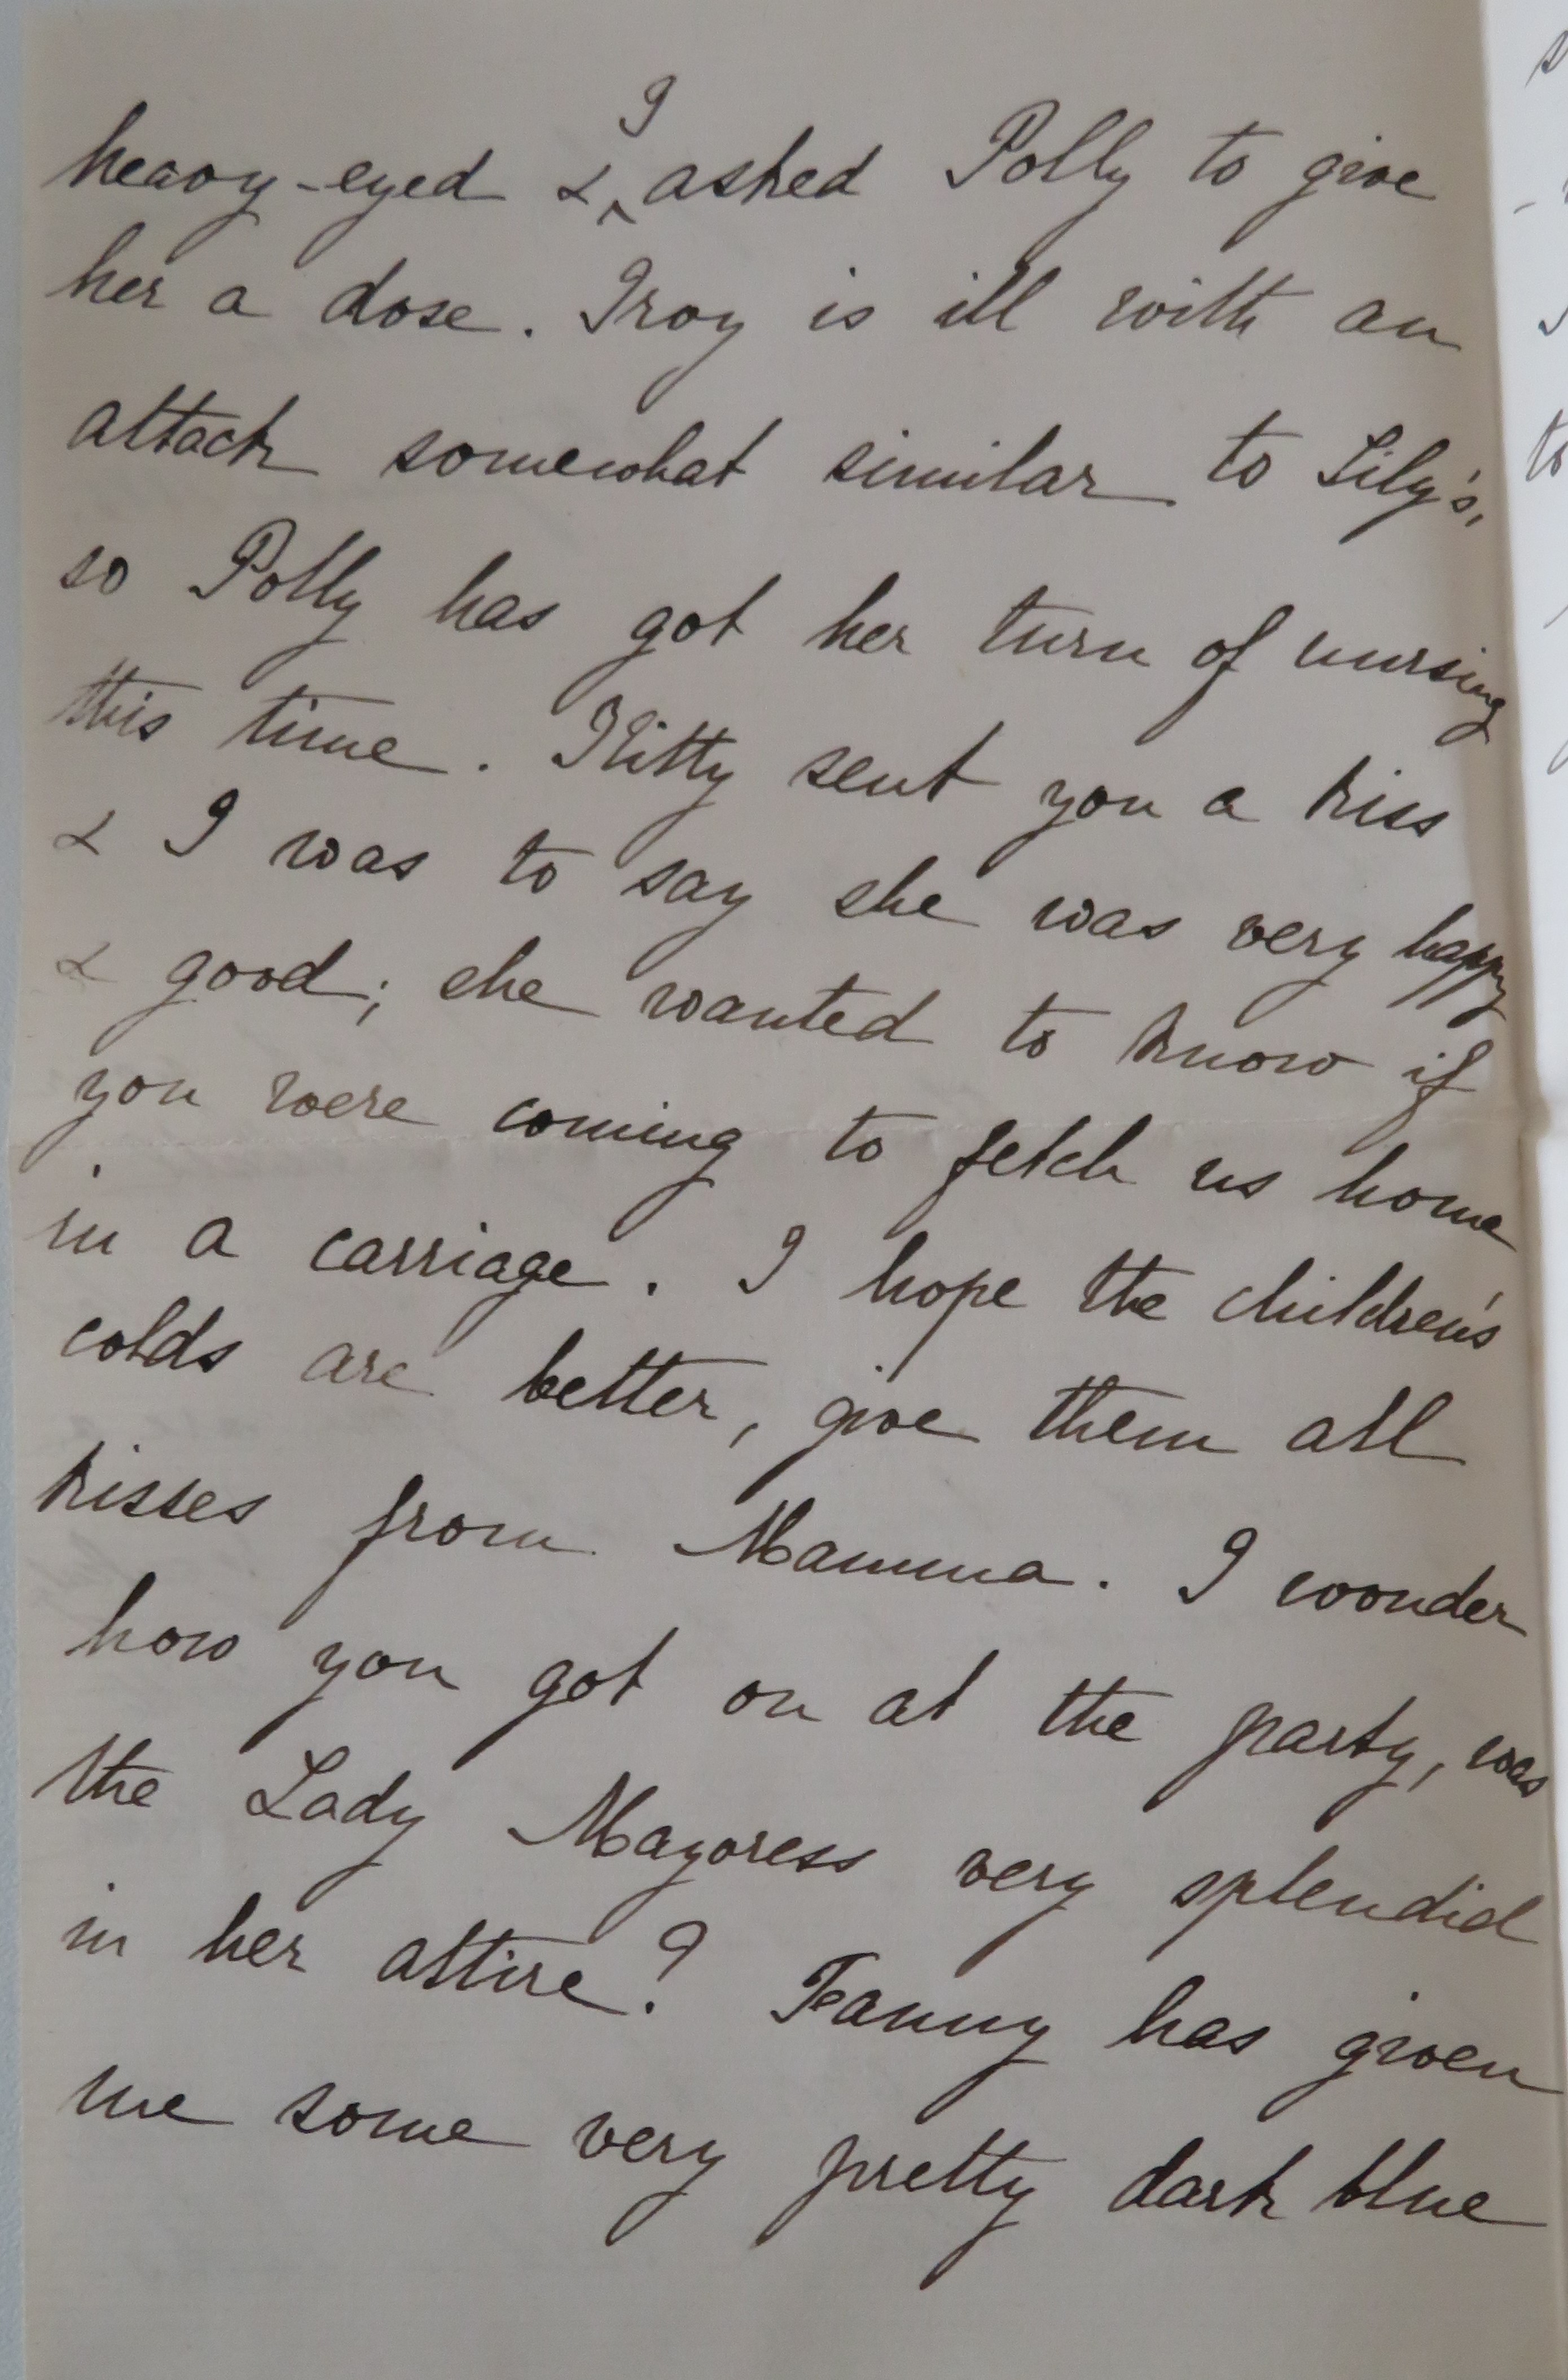 heavy-eyed & I asked Polly to give
her a dose. Troy is ill with an
attack somewhat similar to Lily's,
so Polly has got her turn of nursing
this time. Kitty sent you a kiss
& I was to say she was very happy
& good; she wanted to know if
you were coming to fetch us home
in a carriage. I hope the children's
colds are better, give them all
kisses from Mamma. I wonder
how you got on at the party, was
the Lady Mayoress very splendid
in her attire? Fanny has given
me some very pretty dark blue